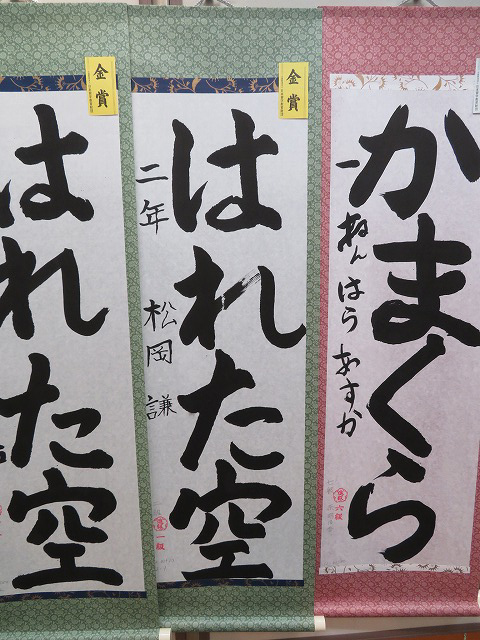 かまくら
一ねん はら あすか
六級
金賞
はれた空
二年 松岡 謙
一級
金賞
はれた空